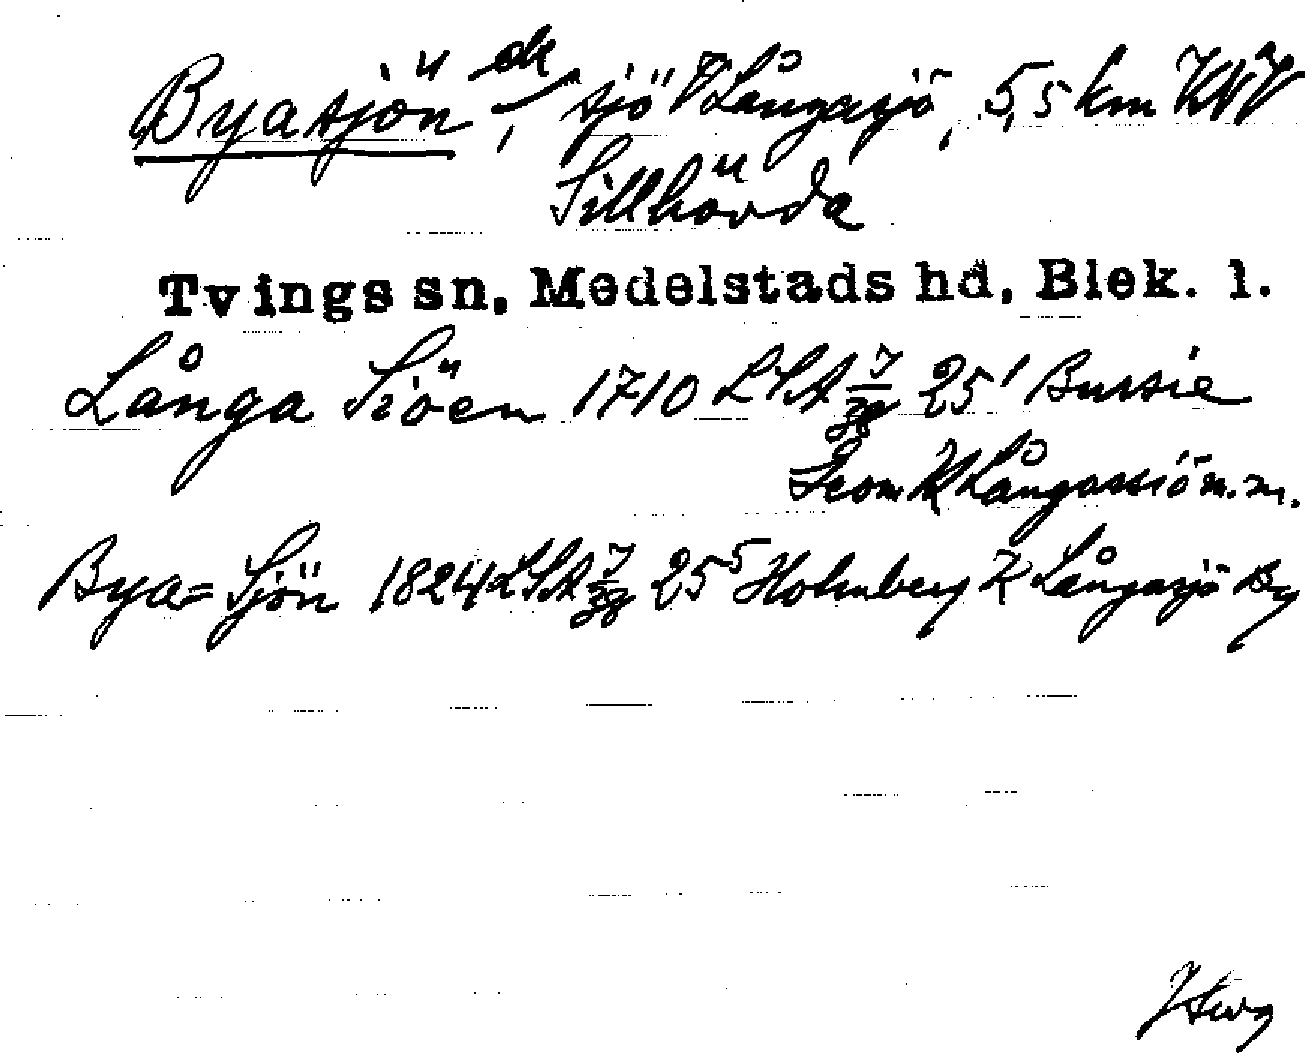 Byasjön ek, sjö V Långasjö, 5,5 km
Sillhövda
Tvings sn, Medelstads hd, Blek. l.
Långa Siöen 1710 LSA 25¹ Bussie
Geom K Långassiö m.m.
Bya=Sjön 1824 LSA 25⁵ Holmberg K Långasjö By